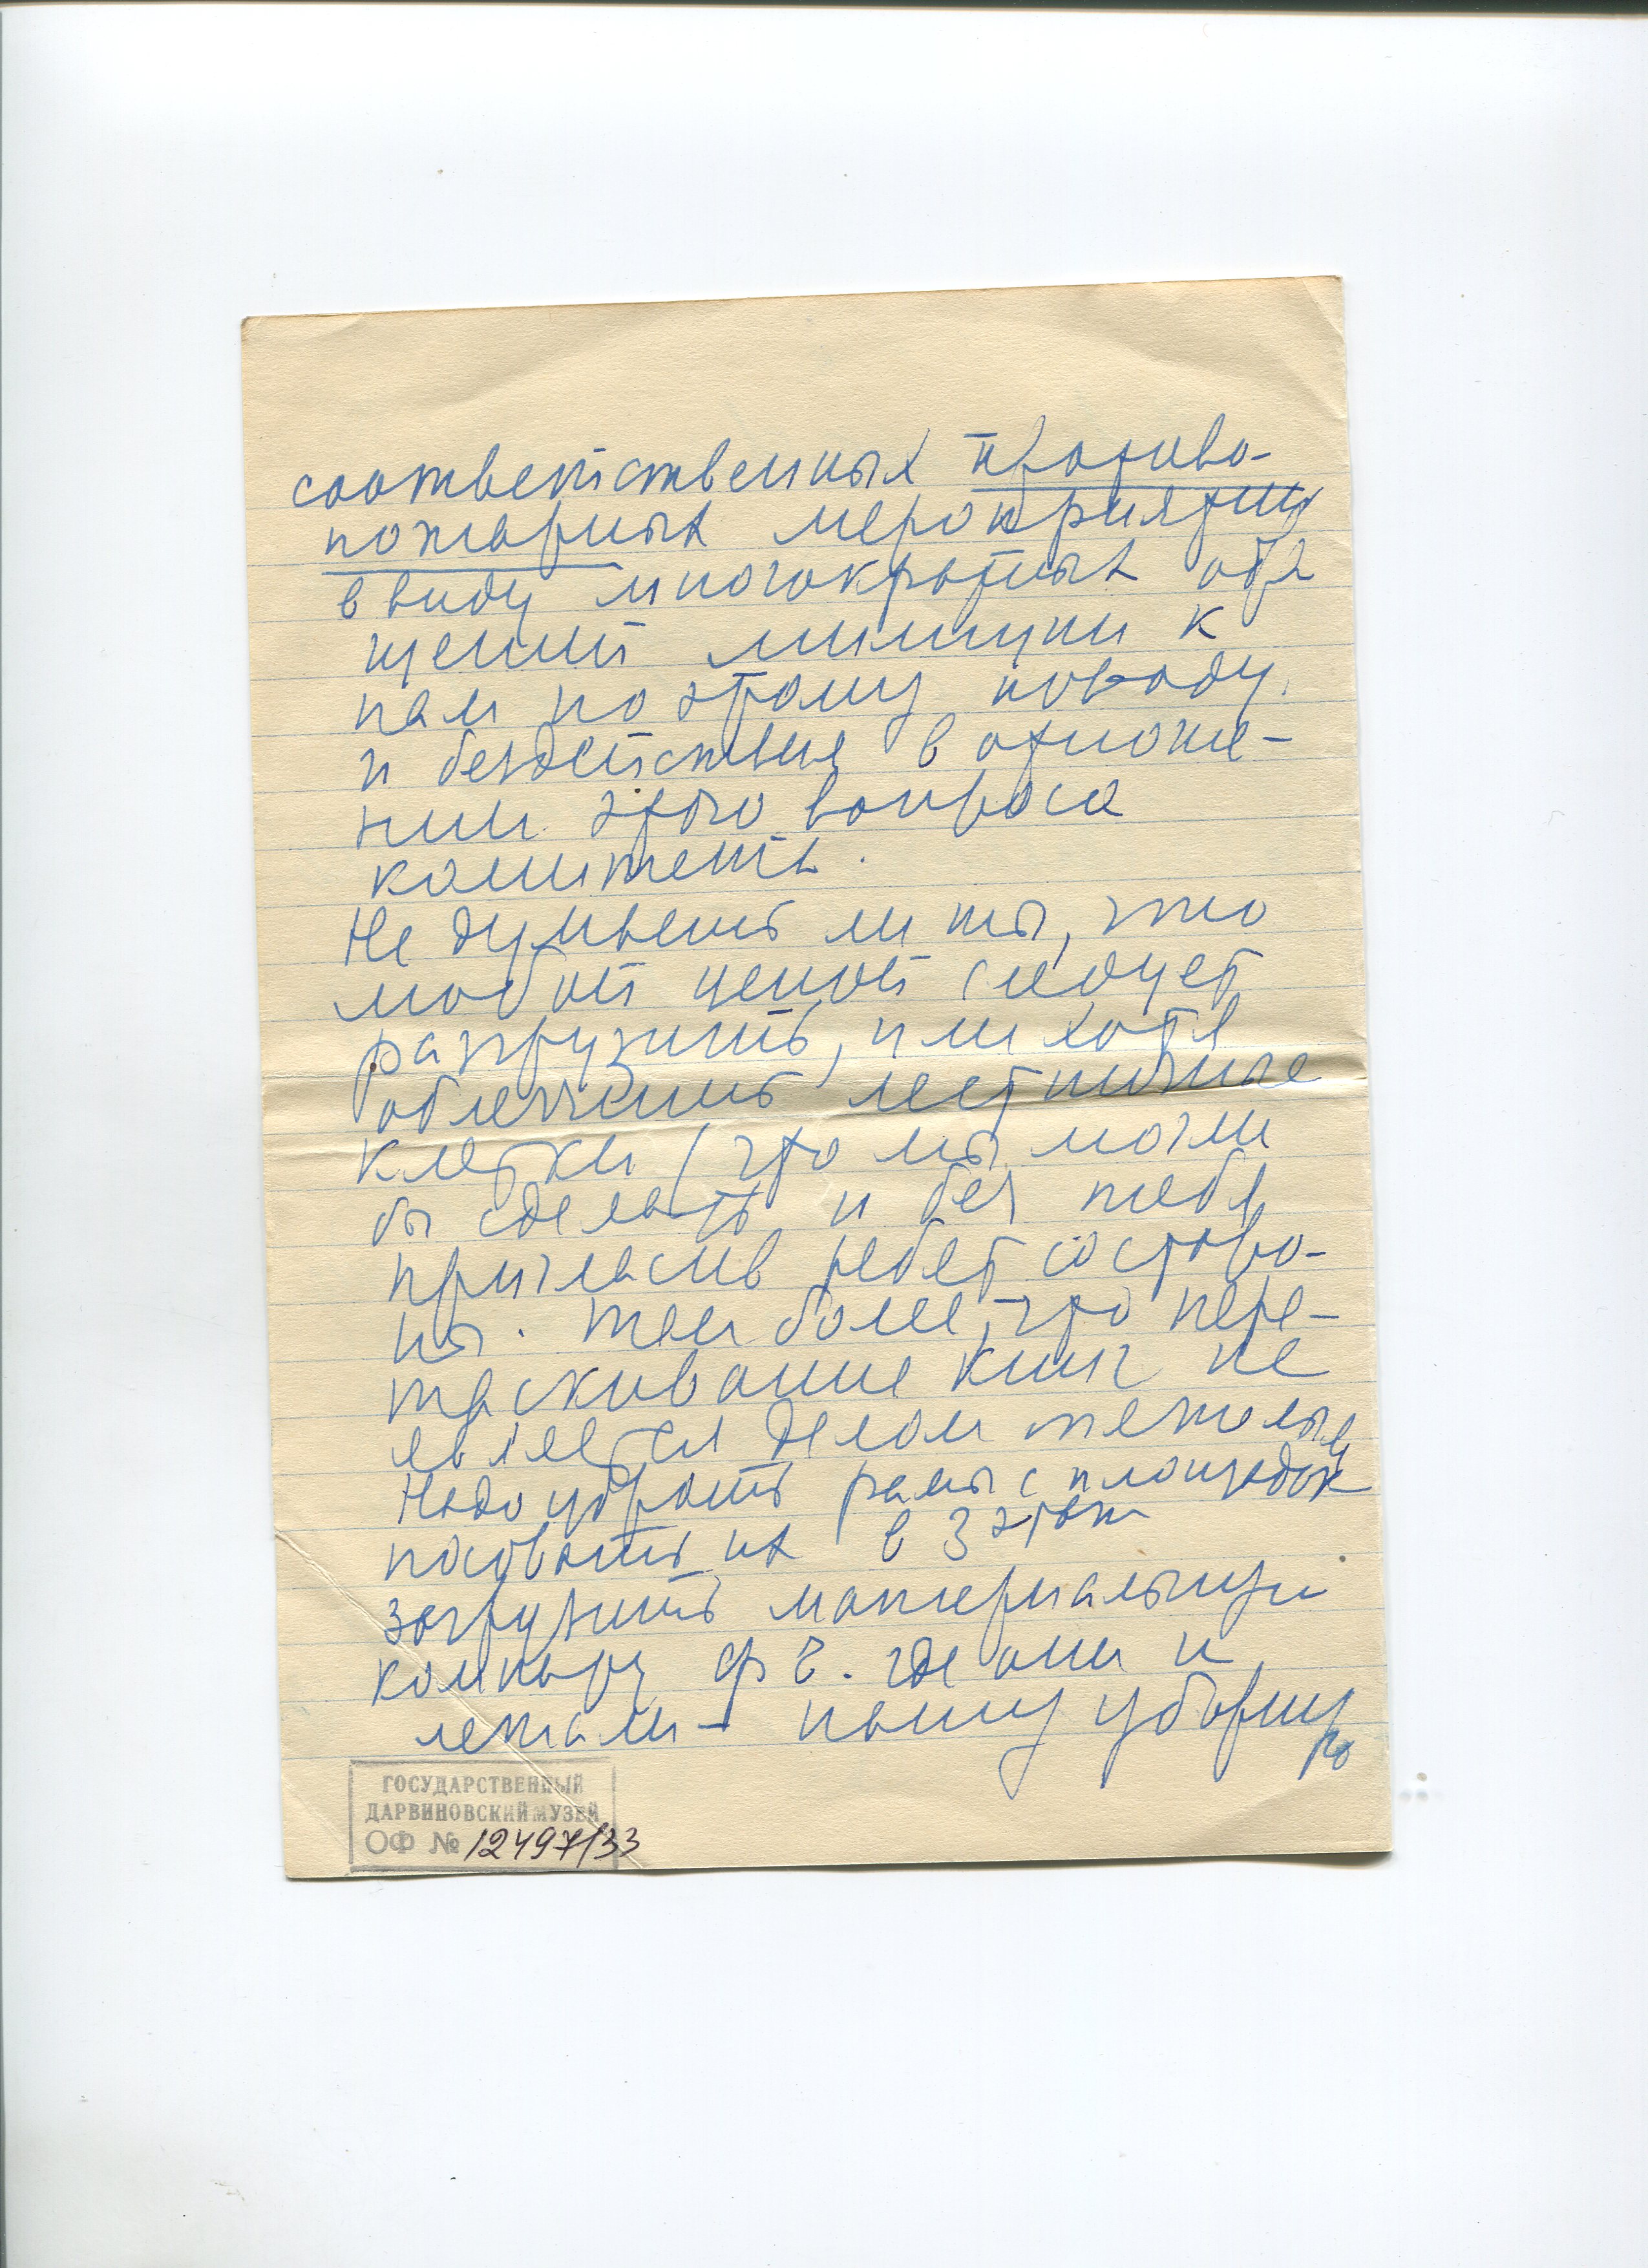 соответственных противо-
пожарных мероприятий
ввиду многократных обра
щений милиции к
нам по этому поводу
и бездействия в отноше-
нии этого вопроса
комитета.
Не думаешь ли ты, что
любой ценой следует
разгрузить, или хотя
облегчить лестничные
клетки (что мы могли
бы сделать и без тебя
пригласив ребят со сторо-
ны. Тем более, что пере-
таскивание книг не
является делом тяжелым
Надо убрать рамы с площадок
посовать их в 3 этаж
загрузить материальную
комнату Ф.Е. где они и
лежали – нашу уборную
ГОСУДАРСТВЕННЫЙ
ДАРВИНОВСКИЙ МУЗЕЙ
ОФ № 12497/33